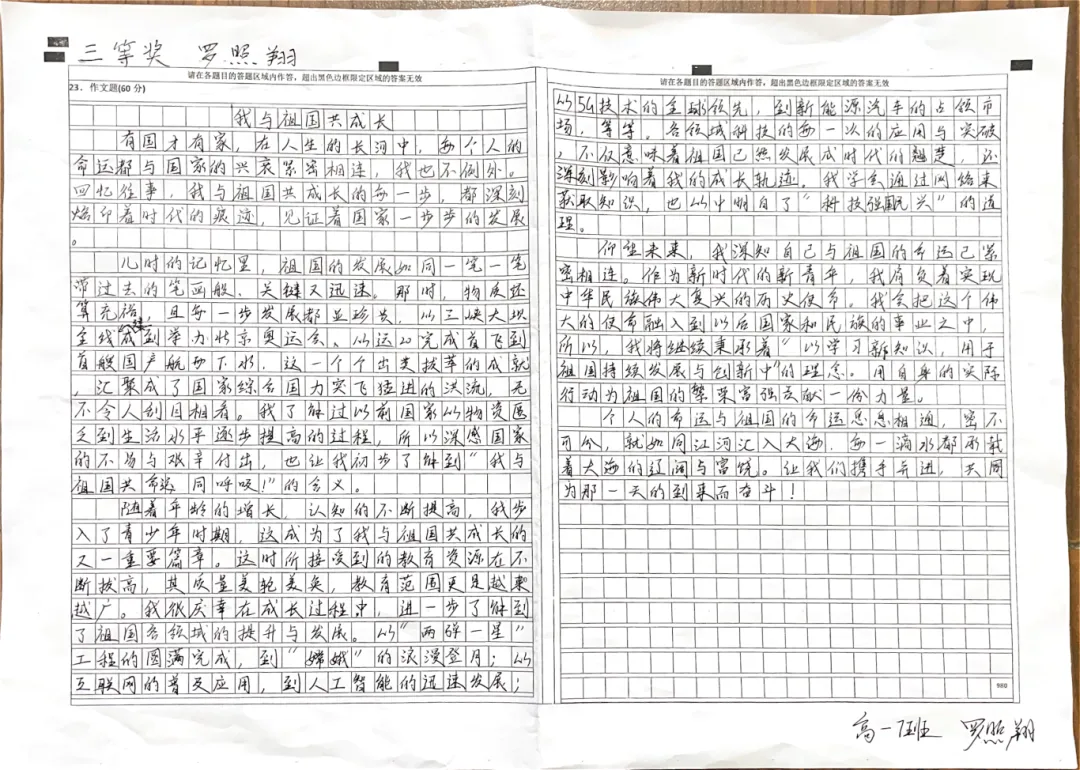 三等奖 罗照翔
请在各题目的答题区域内作答，超出黑色边框限定区域的答案无效
23．作文题(60分)
我与祖国共成长
有国才有家，在人生的长河中，每个人的
命运都与国家的兴衰紧密相连，我也不例外。
回忆往事，我与祖国共成长的每一步，都深刻
烙印着时代的痕迹，见证着国家一步步的发展
。
儿时的记忆里，祖国的发展如同一笔一笔
带过去的笔画般，关键又迅速。那时，物质还
算充裕，且每一步发展都显珍贵，从三峡大坝
全线建成到举办北京奥运会。从运20完成首飞到
首艘国产航母下水，这一个个出类拔萃的成就
，汇聚成了国家综合国力突飞猛进的洪流，无
不令人刮目相看。我了解过以前国家从物资匮
乏到生活水平逐步提高的过程，所以深感国家
的不易与艰辛付出，也让我初步了解到“我与
祖国共命运 同呼吸！”的含义。
随着年龄的增长，认知的不断提高，我步
入了青少年时期，这成为了我与祖国共成长的
又一重要篇章。这时所接受到的教育资源在不
断拔高，其质量美轮美奂，教育范围更是越来
越广。我很庆幸在成长过程中，进一步了解到
了祖国各领域的提升与发展。从“两弹一星”
工程的圆满完成，到“嫦娥”的浪漫登月；从
互联网的普及应用，到人工智能的迅速发展；
请在各题目的答题区域内作答，超出黑色边框限定区域的答案无效
从5G技术的全球领先，到新能源汽车的占领市
场，等等。各领域科技的每一次的应用与突破
，不仅意味着祖国已然发展成时代的翘楚，还
深刻影响着我的成长轨迹。我学会通过网络来
获取知识，也从中明白了“科技强国兴”的道
理。
仰望未来，我深知自己与祖国的命运已紧
密相连。作为新时代的新青年，我肩负着实现
中华民族伟大复兴的历史使命。我会把这个伟
大的使命融入到以后国家和民族的事业之中，
所以，我将继续秉承着“以学习新知识，用于
祖国持续发展与创新中”的理念。用自身的实际
行动为祖国的繁荣富强贡献一份力量。
个人的命运与祖国的命运息息相通，密不
可分，就如同江河汇入大海，每一滴水都承载
着大海的辽阔与富饶。让我们携手并进，共同
为那一天的到来而奋斗！
980
高一7班 罗照翔